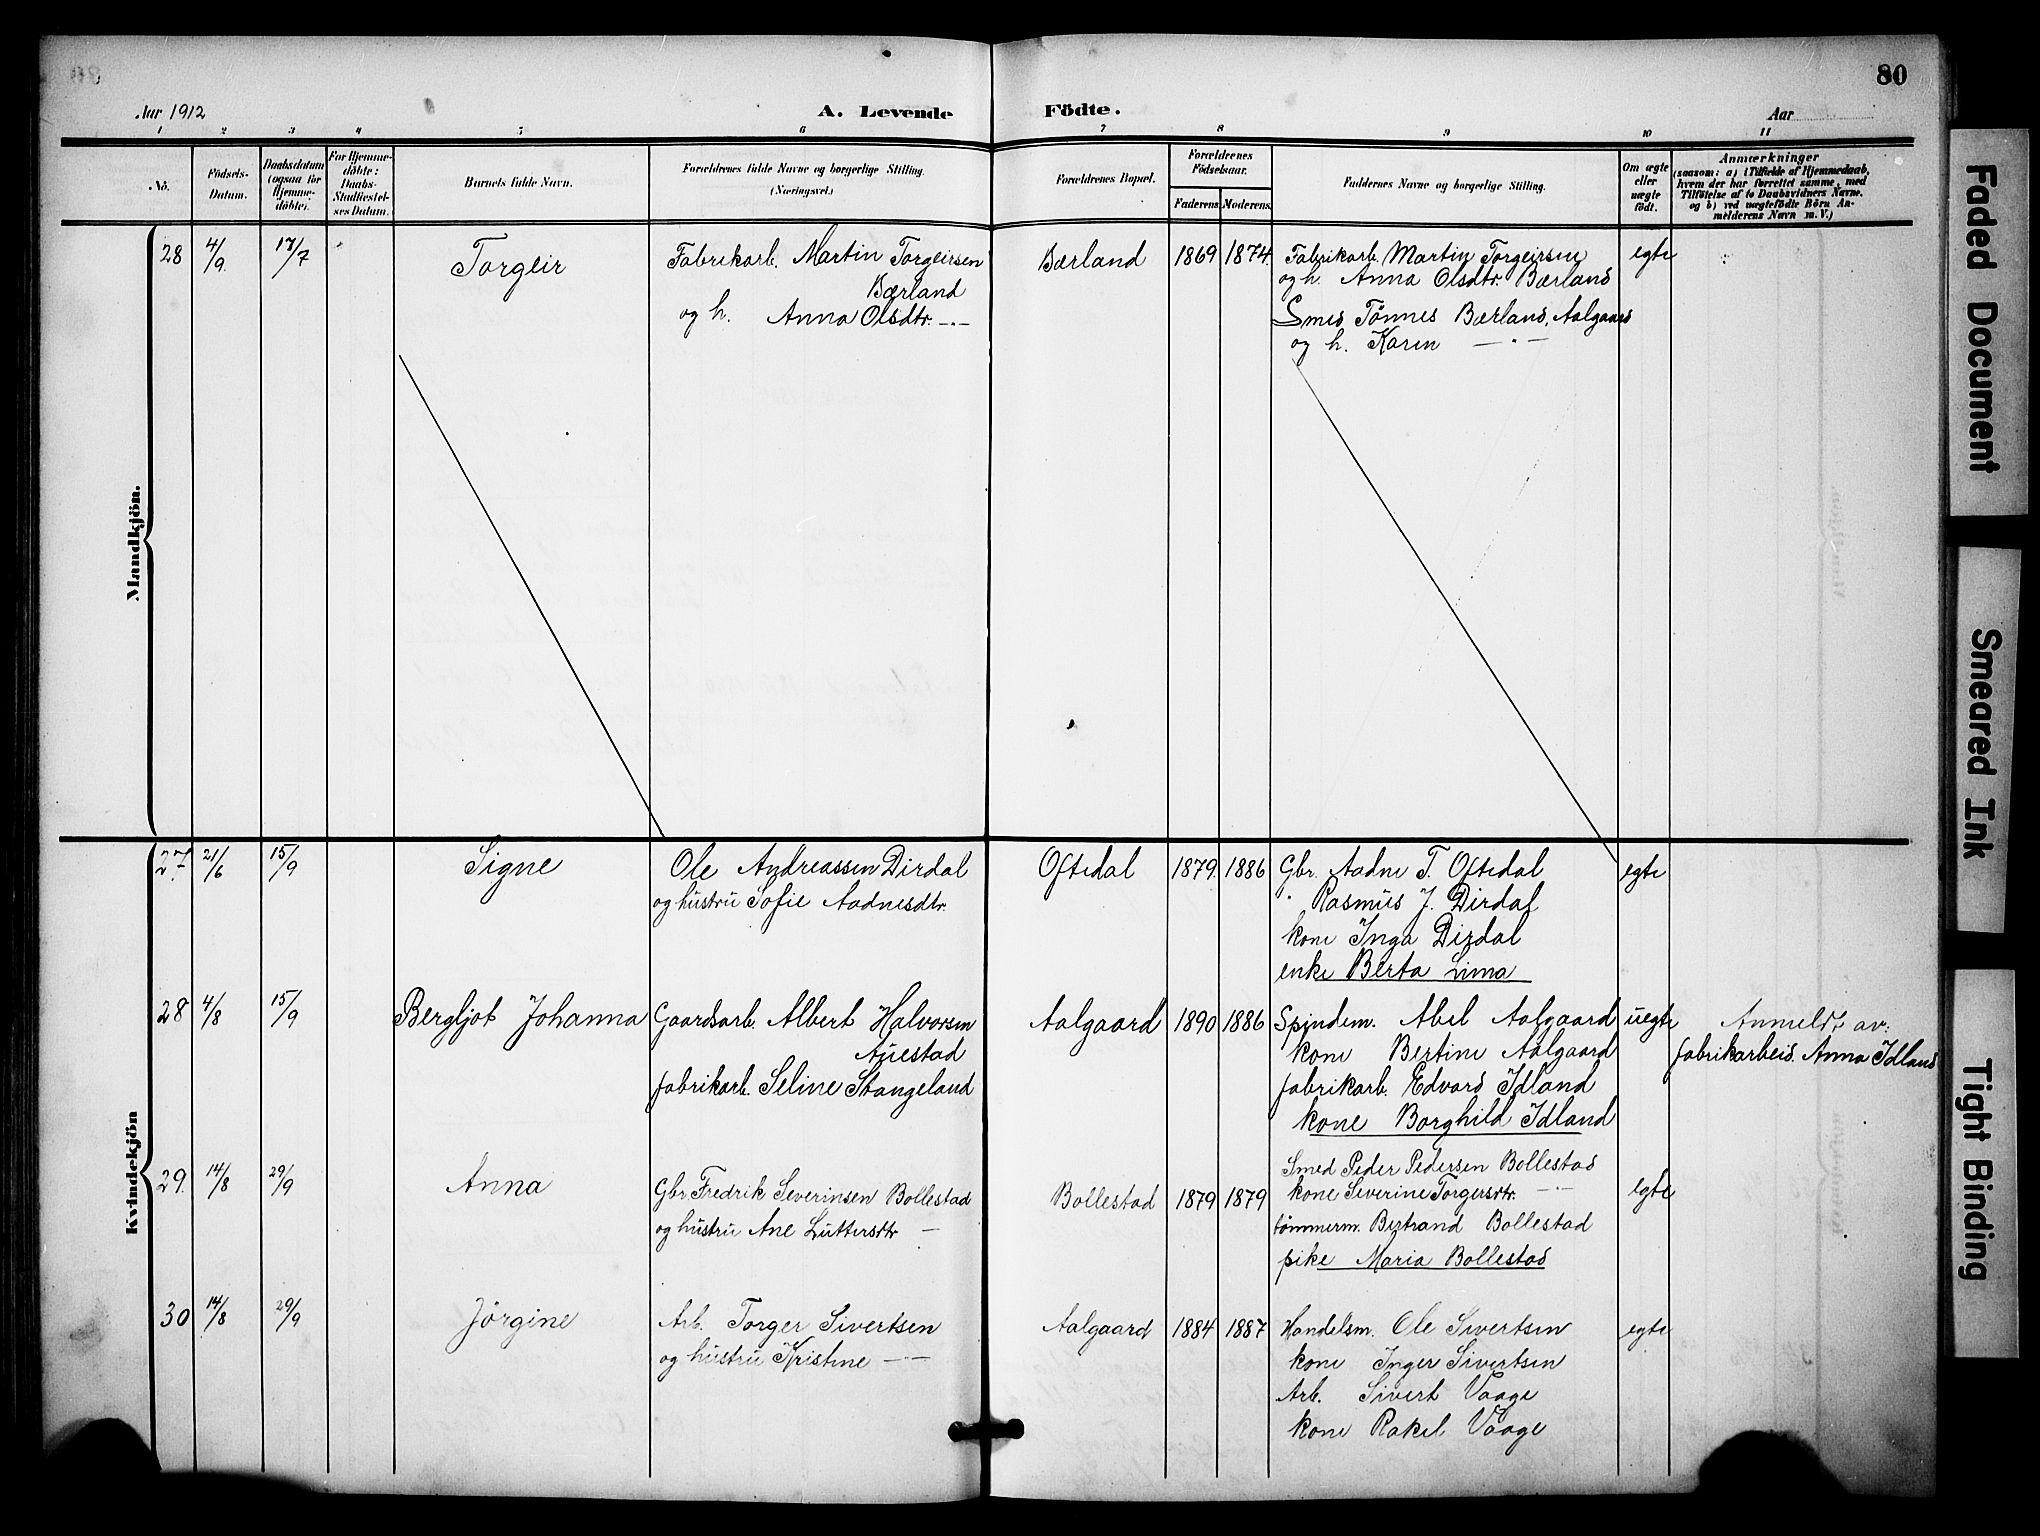 80
Aar 1912
A. Levende Födte.
Aar
1 2 3 4 5 6 7 8 9 10 11
No.
Födsels-
Datum.
Daabsdatum
(ogsaa för
Hjemme-
döbte).
For Hjemme-
döbte:
Daabs-
Stadfæstel-
ses Datum.
Barnets fulde Navn.
Forældrenes fulde Navne og borgerlige Stilling.
(Næringsvei.)
Forældrenes Bopæl.
Forældrenes
Födselsaar.
Faderens Moderens
Faddernes Navne og borgerlige Stilling.
Om ægte
eller
uægte
födt.
Anmærkninger
(saasom: a) i Tilfælde af Hjemmedaab,
hvem der har forrettet samme, med
Tilföielse af to Daabsvidners Navne.
og b) ved uægtefödte Börn An-
melderens Navn m. V.)
Mandkjön.
28 4/9. 17/7 Torgeir
Fabrikarb. Martin Torgeirsen
Bærland
og h. Anna Olsdtr. -"-
Bærland 1869 1874
Fabrikarb. Martin Torgeirsen
og h. Anna Olsdtr. Bærland
Smed Tönnes Bærland, Aalgaard
og h. Karen -"-
egte
Kvindekjön
27. 21/6 15/9 Signe
Ole Andreassen Dirdal
og hustru Sofie Aadnesdtr.
Oftedal 1879 1886
Gbr. Aadne T. Oftedal
" Rasmus J. Dirdal
kone Inga Dirdal
enke Berta Lima
egte
28 4/8 15/9 Bergljot Johanna
Gaardsarb. Albert Halvorsen
Auestad
fabrikarb. Seline Stangeland
Aalgaard 1890 1886
Spindem. Abel Aalgaard
kone Bertine Aalgaard
fabrikarb. Edvard Idland
kone Borghild Idland
uegte
Anmeldt av:
fabrikarbeid. Anna Idland
29. 14/8 29/9 Anna
Gbr. Fredrik Severinsen Bollestad
og hustru Ane Luttersdtr. -
Bollestad 1879 1879
Smed Peder Pedersen Bollestad
kone Severine Torgersdtr. -"-
tömmerm. Bertrand Bollestad
pike Maria Bollestad
egte
30 14/8 29/9 Jörgine
Arb. Torger Sivertsen
og hustru Kristine -"-
Aalgaard 1884 1887
Handelsm. Ole Sivertsen
kone Inger Sivertsen
Arb. Sivert Vaage
kone Rakel Vaage
egte
Faded Document
Smeared Ink
Tight Binding